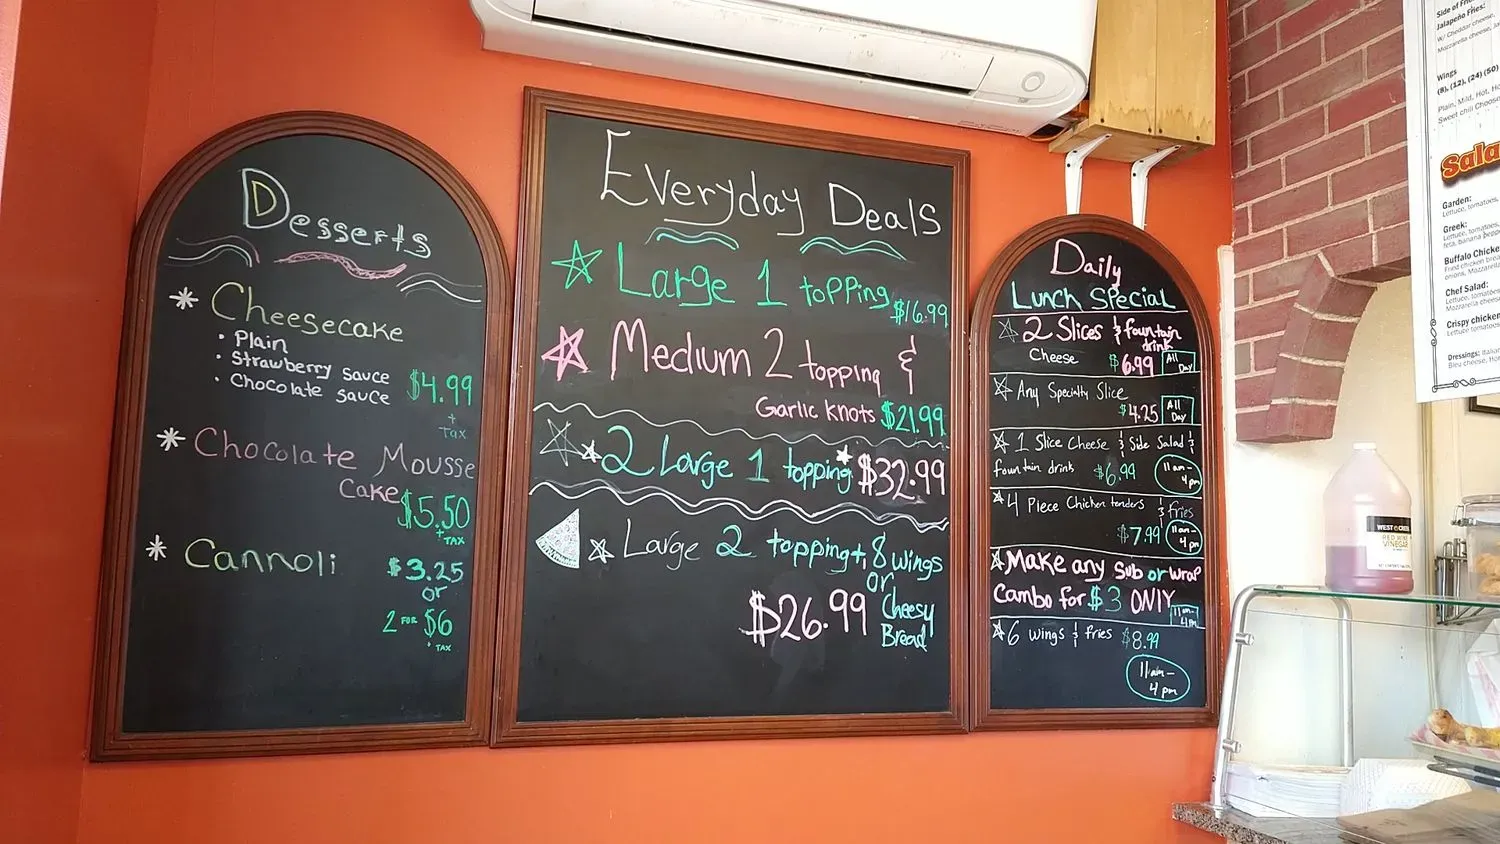 Desserts
* Cheesecake
• Plain
• Strawberry sauce
• Chocolate sauce
$4.99
+
Tax
* Chocolate Mousse
Cake $5.50
+ TAX
* Cannoli
$3.25
or
2 FOR $6
+ TAX
Everyday Deals
Large 1 topping $16.99
Medium 2 topping &
Garlic knots $21.99
2 Large 1 topping $32.99
Large 2 topping + 8 wings
or
$26.99 Cheesy
Bread
Daily
Lunch Special
2 Slices & fountain
drink
Cheese $6.99 All
Day
Any Specialty Slice
$4.25 All
Day
1 Slice Cheese & Side Salad &
fountain drink $6.99 11am-
4pm
4 Piece Chicken tenders & fries
$7.99 11am-
4pm
Make any sub or wrap
Combo for $3 ONLY 11am-
4pm
6 wings & fries $8.99
11am-
4pm
Side of Fries
Jalapeño Fries:
W/ Cheddar cheese,
Mozzarella cheese,
Wings
(8), (12), (24) (50)
Plain, Mild, Hot,
Sweet chili
Sala
Garden:
Lettuce, tomatoes,
Greek:
Lettuce, tomatoes,
feta, banana
Buffalo Chicke
Fried chicken
onions, Mozzarella
Chef Salad:
Lettuce, tomatoes,
Mozzarella
Crispy chicken
Lettuce tomatoes
Dressings:
Bleu cheese,
WEST CREEK
RED WINE
VINEGAR